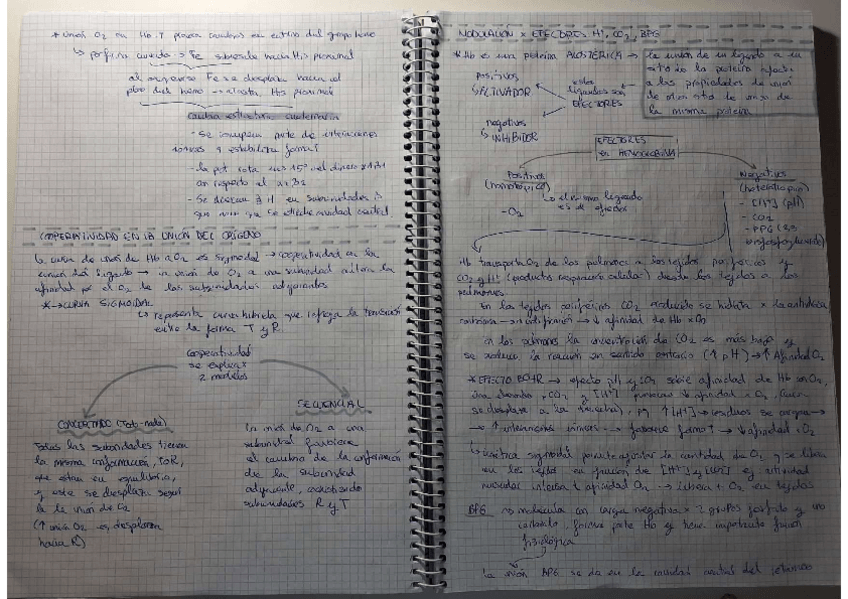 * Unión O₂ en Hb.T provoca cambios en entorno del grupo hemo
↳ porfirina curvada → Fe sobresale hacia His proximal
al oxigenarse Fe se desplaza hacia el
plano del hemo → arrastra His proximal
cambia estructura cuaternaria
- Se rompen parte de interacciones
iónicas y estabiliza forma
- la prot rota unos 15° el dímero α1β1
con respecto al α2β2
- Se desplazan en subunidades
que hacen que se estreche cavidad central.
COOPERATIVIDAD EN LA UNIÓN DEL OXÍGENO
la curva de unión de Hb a O₂ es sigmoidal → cooperatividad en la
unión del ligando → la unión de O₂ a una subunidad altera la
afinidad por el O₂ de las subunidades adyacentes
* → CURVA SIGMOIDAL
↳ representa curva híbrida que refleja la transición
entre la forma T y R.
Cooperatividad
se explica x
2 modelos
CONCERTADO (Todo-nada)
Todas las subunidades tienen
la misma conformación, T o R,
están en equilibrio,
y este se desplaza según
la unión de
(↑ unión O₂ es desplaza
hacia R)
SECUENCIAL
La unión de O₂ a una
subunidad favorece
el cambio de la conformación
de la subunidad
adyacente, coexistiendo
subunidades R y T
MODULACIÓN x EFECTORES H⁺, CO₂, BPG
* Hb es una proteína ALOSTÉRICA → la unión de un ligando a un
sitio de la proteína afecta
a las propiedades de unión
de otro sitio de unión de
la misma proteína
estos
ligandos son
EFECTORES
positivos
↳ ACTIVADOR
negativos
↳ INHIBIDOR
EFECTORES
en HEMOGLOBINA
Positivos
(homotrópico)
↳ el mismo ligando
es el efector
- O₂
Negativos
(heterotrópico)
- [H⁺] (pH)
- CO₂
- BPG (2,3
bisfosfoglicerato)
Hb transporta O₂ de los pulmones a los tejidos periféricos y
CO₂ y H⁺ (productos respiración celular) desde los tejidos a los
pulmones
En los tejidos periféricos CO₂ producido se hidrata x la anhidrasa
carbónica → acidificación → ↓ afinidad de Hb x O₂
en los pulmones la concentración de CO₂ es más baja y
se produce la reacción en sentido contrario (↑ pH) → ↑ Afinidad O₂
* EFECTO BOHR → efecto pH y CO₂ sobre afinidad de Hb con O₂,
una elevada pCO₂ y [H⁺] provocan ↓ afinidad x O₂ (curva
se desplaza a la derecha), ↑ [H⁺] → residuos se cargan →
→ ↑ interacciones iónicas → favorece forma T → ↓ afinidad x O₂
↳ cinética sigmoidal permite ajustar la cantidad de O₂ q se libera
en los tejidos en función de [H⁺] y [CO₂] ej actividad
muscular intensa ↓ afinidad O₂ → libera + O₂ en tejidos
BPG → molécula con carga negativa x 2 grupos fosfato y uno
carboxilo, forma parte Hb y tiene importante función
fisiológica
La unión BPG se da en la cavidad central del tetrámero